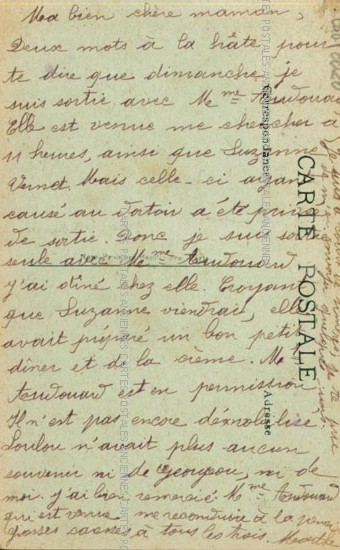 Ma bien chère maman,
Deux mots à la hâte pour
te dire que dimanche je
suis sortie avec Mme Audouard
Elle est venue me chercher à
11 heures, ainsi que Suzanne
Vernet. Mais celle-ci ayant
causé au dortoir a été privée
de sortie. Donc je suis sortie
seule avec Mme Audouard
j'ai dîné chez elle. Croyant
que Suzanne viendrait, elle
avait préparé un bon petit
dîner et de la crème. M.
Audouard est en permission
Il n'est pas encore démobilisé.
Loulou n'avait plus aucun
souvenir ni de ni de
moi. j'ai bien remercié Mme Audouard
qui est venue me reconduire à la pension
Grosses caresses à tous les trois.
CARTE POSTALE
Correspondance
Adresse